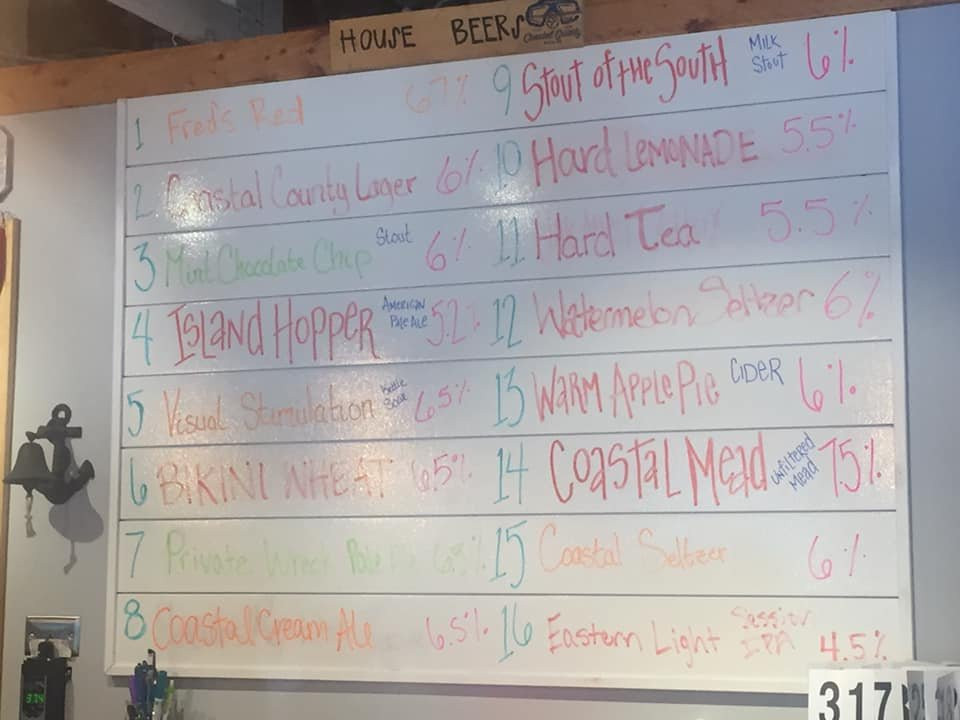 HOUSE BEERS
1 Fred's Red 6.7%
2 Coastal County Lager 6%
3 Mint Chocolate Chip Stout 6%
4 ISLAND HOPPER AMERICAN PALE ALE 5.2%
5 Visual Stimulation Kettle Sour 6.5%
6 BIKINI WHEAT 6.5%
7 Private Wreck Pale
8 Coastal Cream Ale 6.5%
9 Stout of the South Milk Stout 6%
10 Hard LEMONADE 5.5%
11 Hard Tea 5.5%
12 Watermelon Seltzer 6%
13 WARM APPLE PIE CIDER 6%
14 Coastal Mead unfiltered Mead 7.5%
15 Coastal Seltzer 6%
16 Eastern Light Session IPA 4.5%
374
317